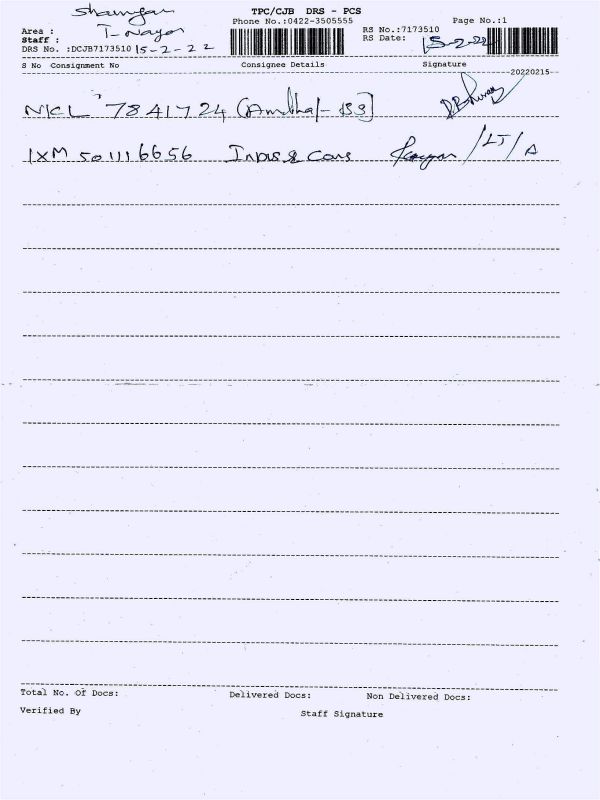 TPC/CJB DRS - PCS
Phone No.:0422-3505555 Page No.:1
Area : T-Nagar RS No.:7173510
Staff : RS Date: 15-2-22
DRS No. :DCJB7173510 15-2-22
S No Consignment No Consignee Details Signature
20220215
NKL 7841724
IXM 501116656
Total No. Of Docs: Delivered Docs: Non Delivered Docs:
Verified By Staff Signature